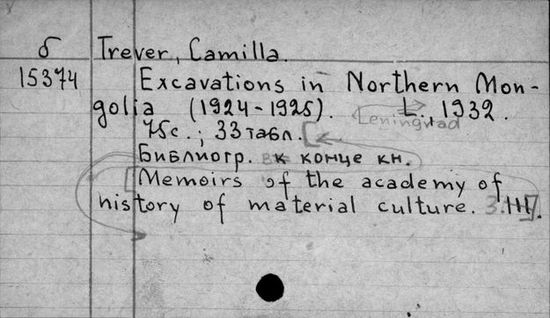 б Trever, Camilla.
15374 Excavations in Northern Mon-
golia (1924-1925). L., 1932.
Leningrad
75c.; 33 табл.
Библиогр. к конце кн.
[Memoirs of the academy of
history of material culture. 3. III].